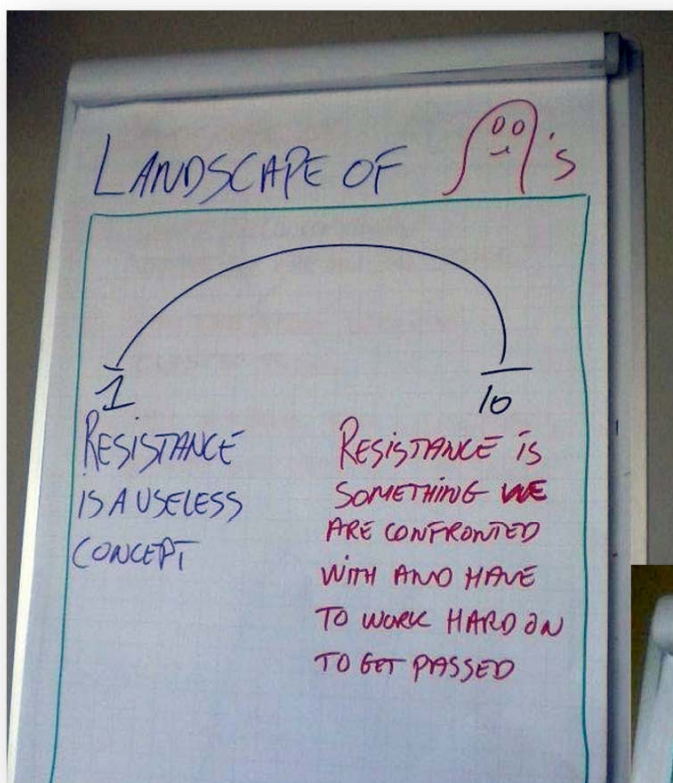 LANDSCAPE OF 's
1
10
RESISTANCE
IS A USELESS
CONCEPT
RESISTANCE IS
SOMETHING WE
ARE CONFRONTED
WITH AND HAVE
TO WORK HARD ON
TO GET PASSED